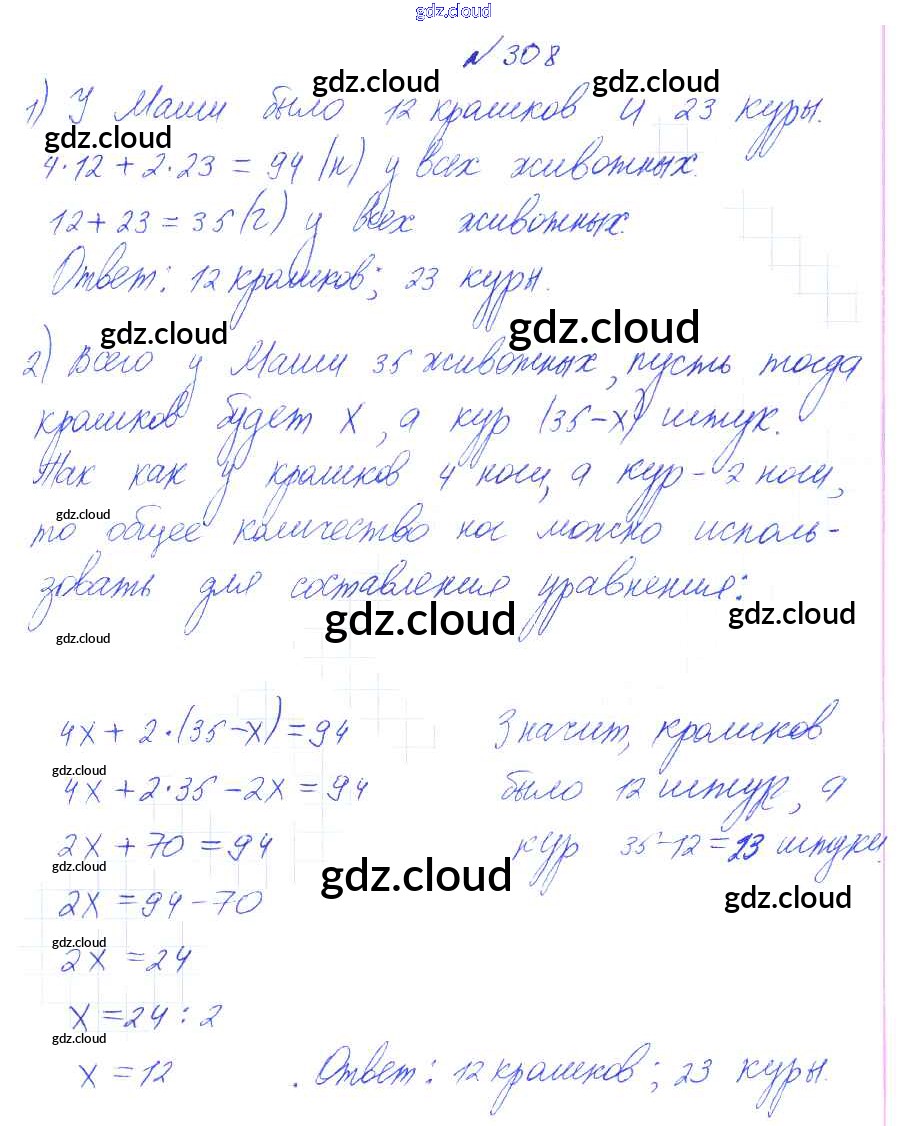 gdz.cloud
№ 308
gdz.cloud gdz.cloud
1) У Маши было 12 кроликов и 23 куры.
gdz.cloud
4·12 + 2·23 = 94 (н) у всех животных.
12 + 23 = 35 (г) у всех животных.
Ответ: 12 кроликов; 23 куры.
gdz.cloud gdz.cloud
2) Всего у Маши 35 животных, пусть тогда
кроликов будет x, а кур (35-x) штук.
Так как у кроликов 4 ноги, а кур - 2 ноги,
gdz.cloud
то общее количество ног можно исполь-
зовать для составления уравнения:
gdz.cloud gdz.cloud
gdz.cloud
4x + 2·(35-x) = 94
gdz.cloud
4x + 2·35 - 2x = 94
2x + 70 = 94
gdz.cloud
2x = 94 - 70
gdz.cloud
2x = 24
x = 24 : 2
gdz.cloud
x = 12
Значит, кроликов
было 12 штук, а
кур 35-12 = 23 штуки.
gdz.cloud gdz.cloud
. Ответ: 12 кроликов; 23 куры.